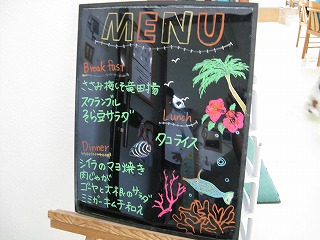 MENU
Breakfast
ささみ梅しそ竜田揚
スクランブル
そら豆サラダ
Lunch
タコライス
Dinner
シイラのマヨ焼き
肉じゃが
ゴーヤと大根のサラダ
ミミガーキムチ和え